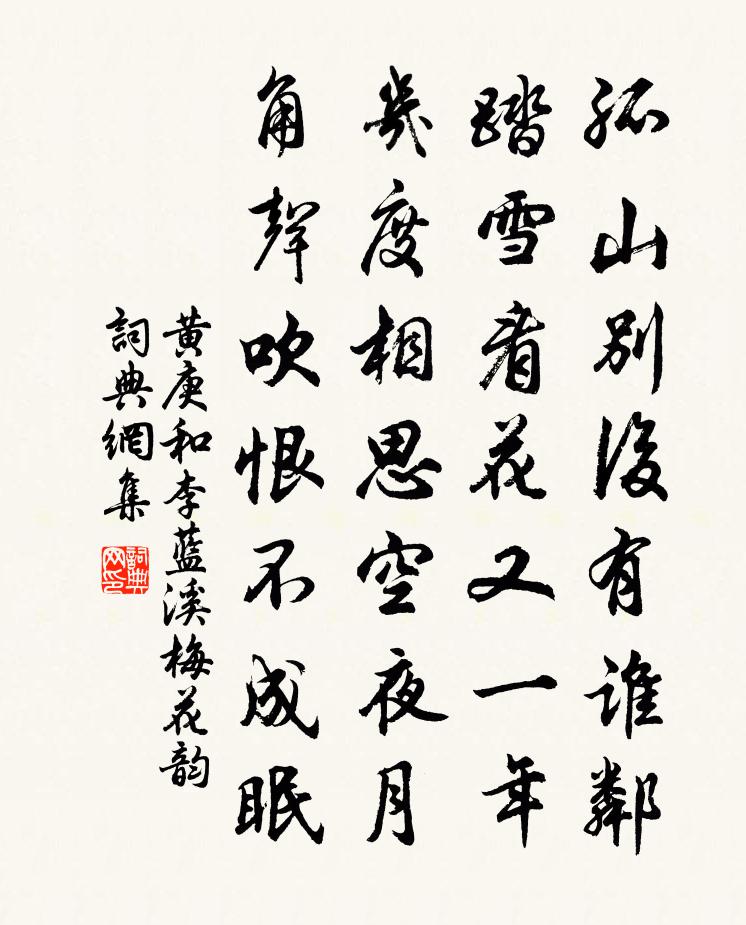 孤山別後有誰鄰
踏雪看花又一年
幾度相思空夜月
角聲吹恨不成眠
黄庚和李藍溪梅花韵
詞典網集
詞典网印